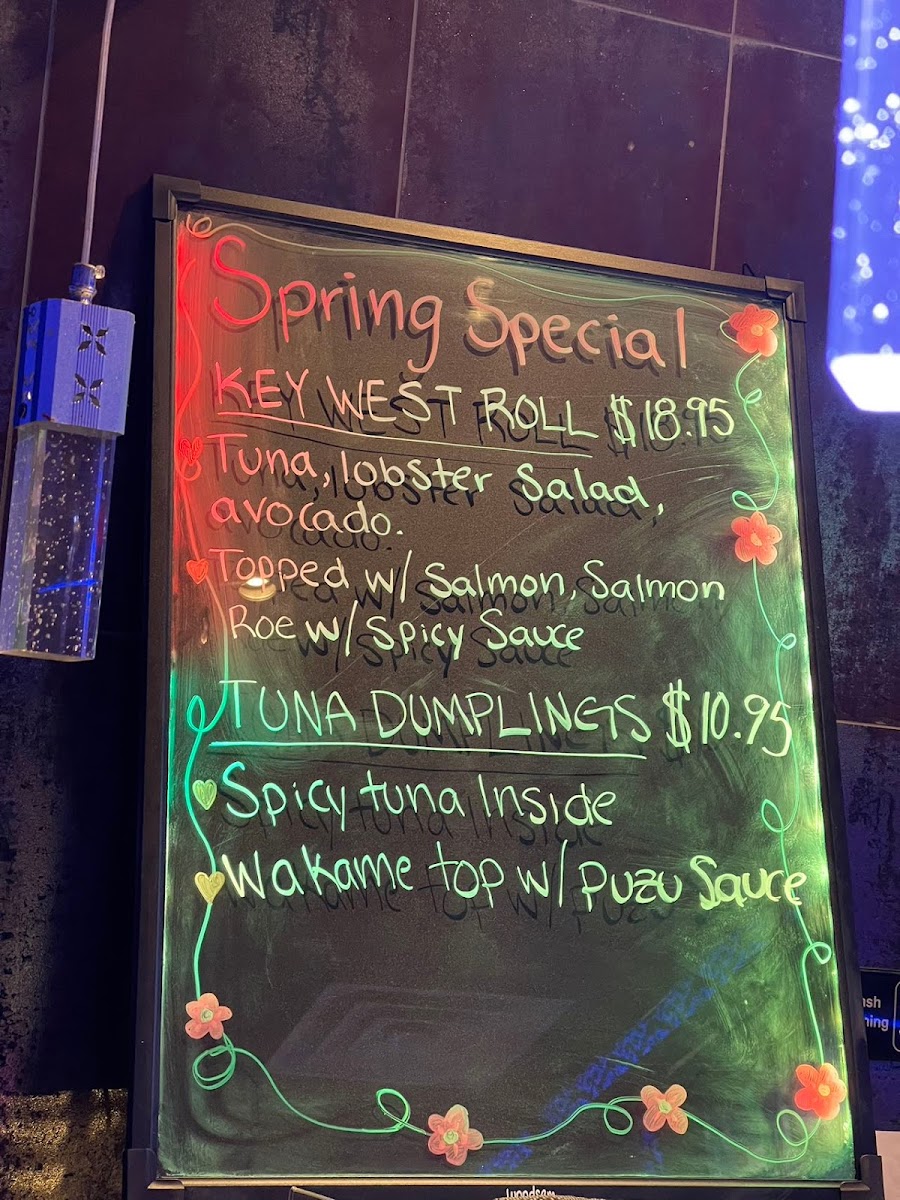 Spring Special
KEY WEST ROLL $18.95
Tuna, lobster Salad,
avocado.
Topped w/ Salmon, Salmon
Roe w/ Spicy Sauce
TUNA DUMPLINGS $10.95
Spicy tuna Inside
Wakame top w/ puzu Sauce